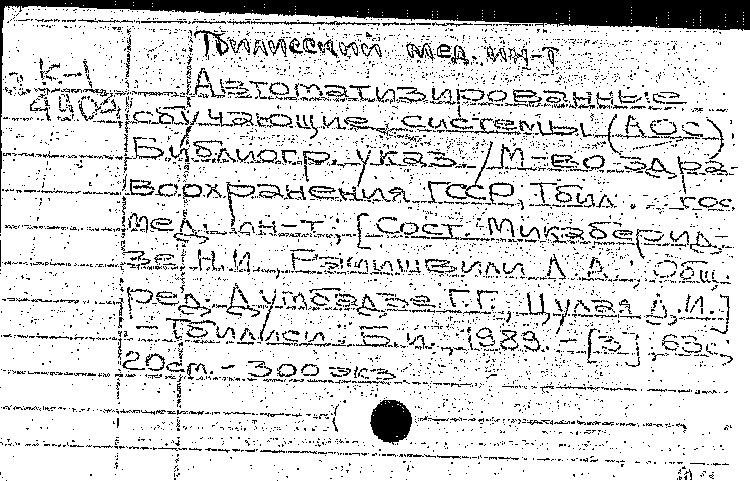 Тбилисский мед. ин-т
К-1
4904
Автоматизированные
обучающие системы (АОС):
Библиогр. указ. / М-во здра-
воохранения ГССР, Тбил. гос.
мед. ин-т; [Сост. Микаберид-
зе Н.И., Рамишвили Л.А.; Общ.
ред. Думбадзе Г.Г., Цулая Д.И.]
- Тбилиси: Б.и., 1989. - [3], 63с;
20см. - 300 экз